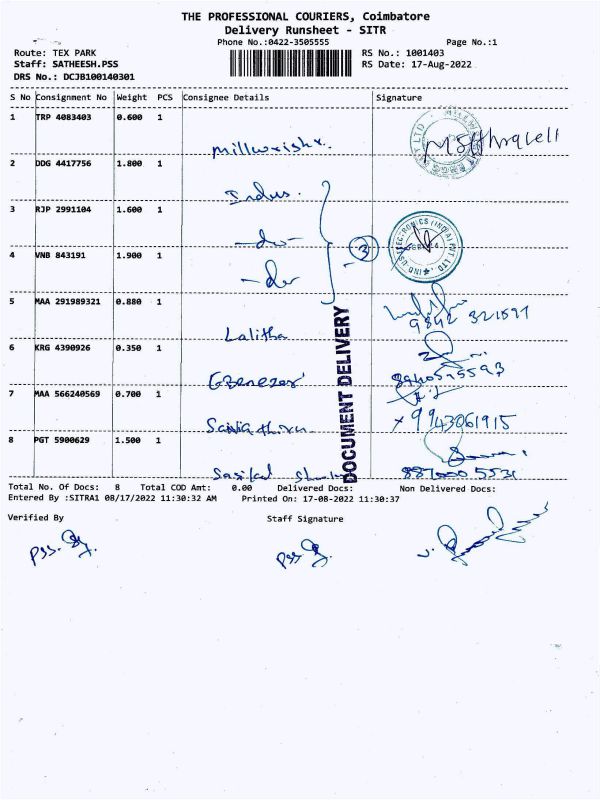 THE PROFESSIONAL COURIERS, Coimbatore
Delivery Runsheet - SITR
Phone No.:0422-3505555 Page No.:1
Route: TEX PARK RS No.: 1001403
Staff: SATHEESH.PSS RS Date: 17-Aug-2022
DRS No.: DCJB100140301
S No Consignment No Weight PCS Consignee Details Signature
1 TRP 4083403 0.600 1
Millwrights.
2 DDG 4417756 1.800 1
Indus.
3 RJP 2991104 1.600 1
-do-
4 VNB 843191 1.900 1 3
-do-
5 MAA 291989321 0.880 1
Lalitha 9842 321597
6 KRG 4390926 0.350 1
Ebenezer 8940595593
7 MAA 566240569 0.700 1
9943061915
8 PGT 5900629 1.500 1
DOCUMENT DELIVERY
Total No. Of Docs: 8 Total COD Amt: 0.00 Delivered Docs: Non Delivered Docs:
Entered By :SITRA1 08/17/2022 11:30:32 AM Printed On: 17-08-2022 11:30:37
Verified By Staff Signature